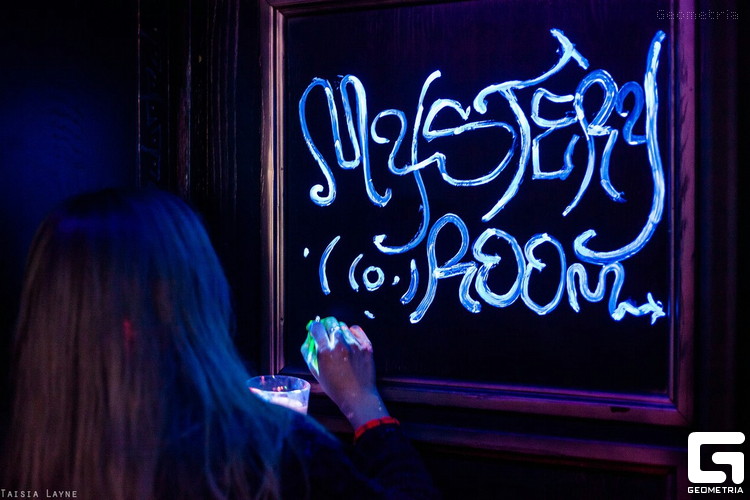 Geometria
MYSTERY
ROOM
TAISIA LAYNE
GEOMETRIA